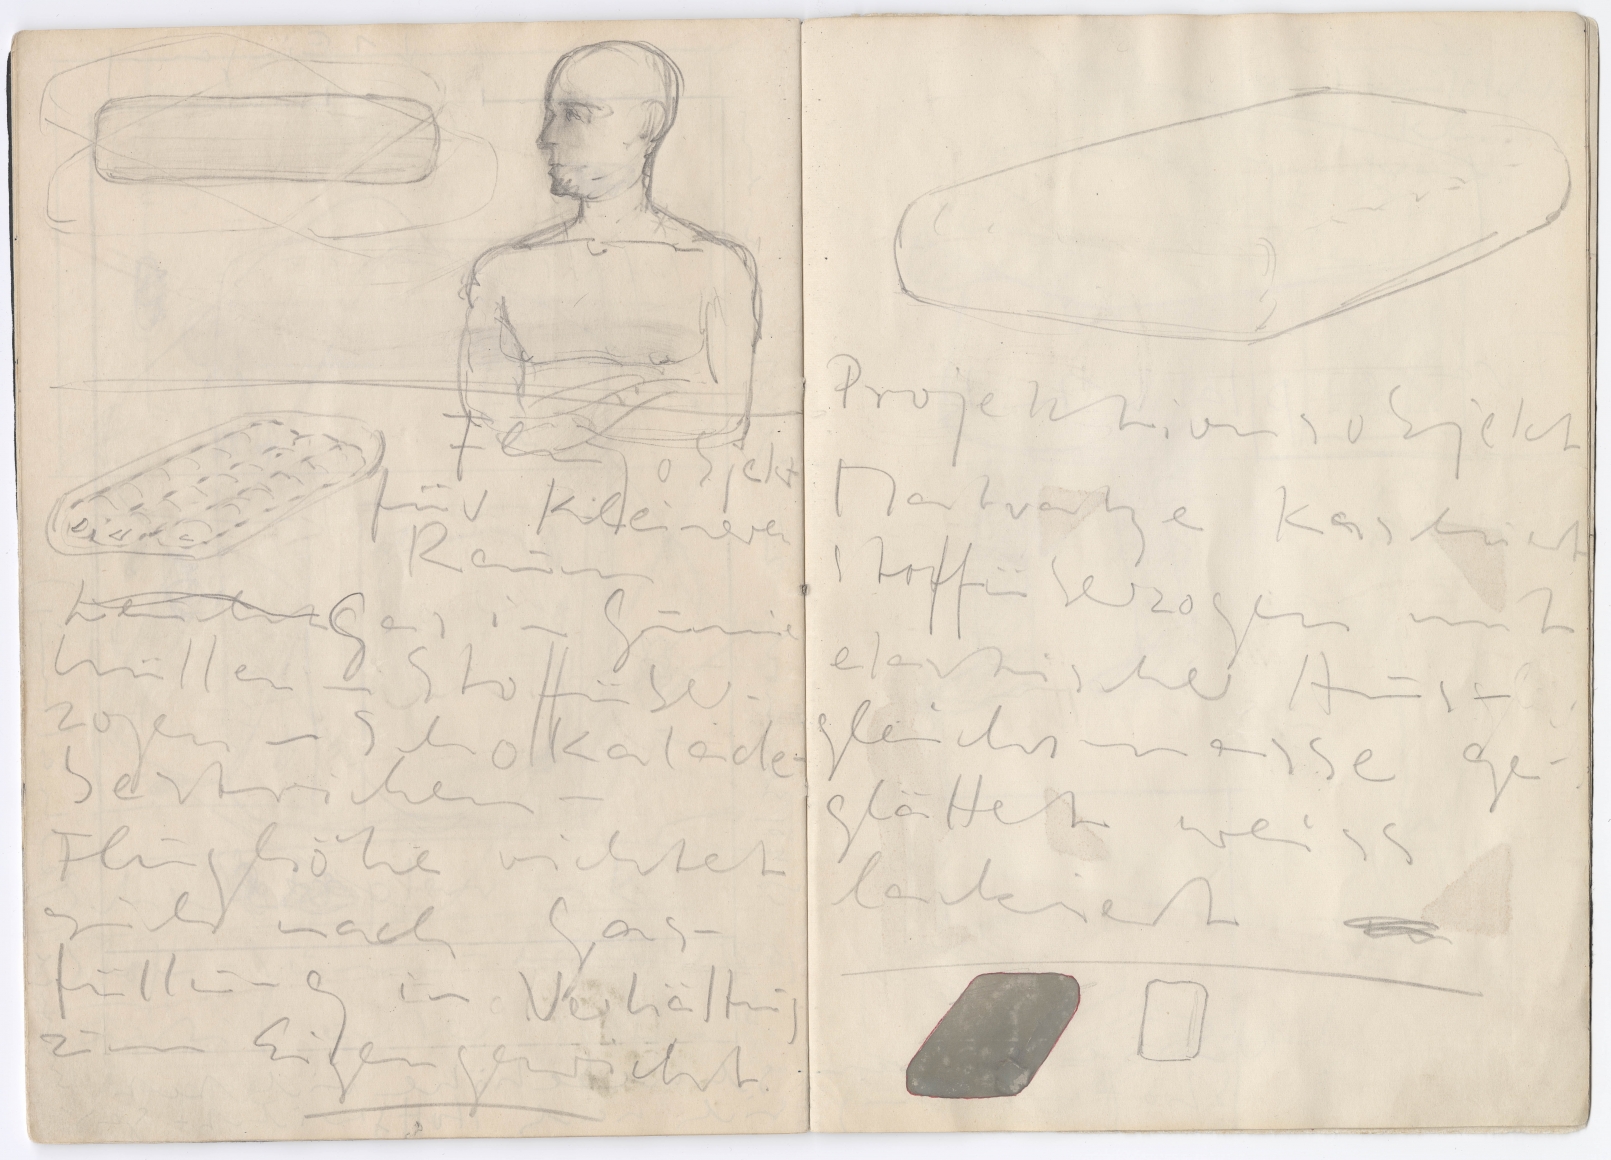 Flugobjekt
für kleineren
Raum
Gas in Gummi
hüllen – Stoffüber-
zogen – Schokalade-
bestrichen –
Flughöhe richtet
sich nach Gas-
füllung im Verhältnis
zum Eigengewicht.
Projektionsobjekt
Matratze kaschiert
stoffüberzogen mit
elastischer Aus-
gleichsmasse ge-
glättet weiss
lackiert